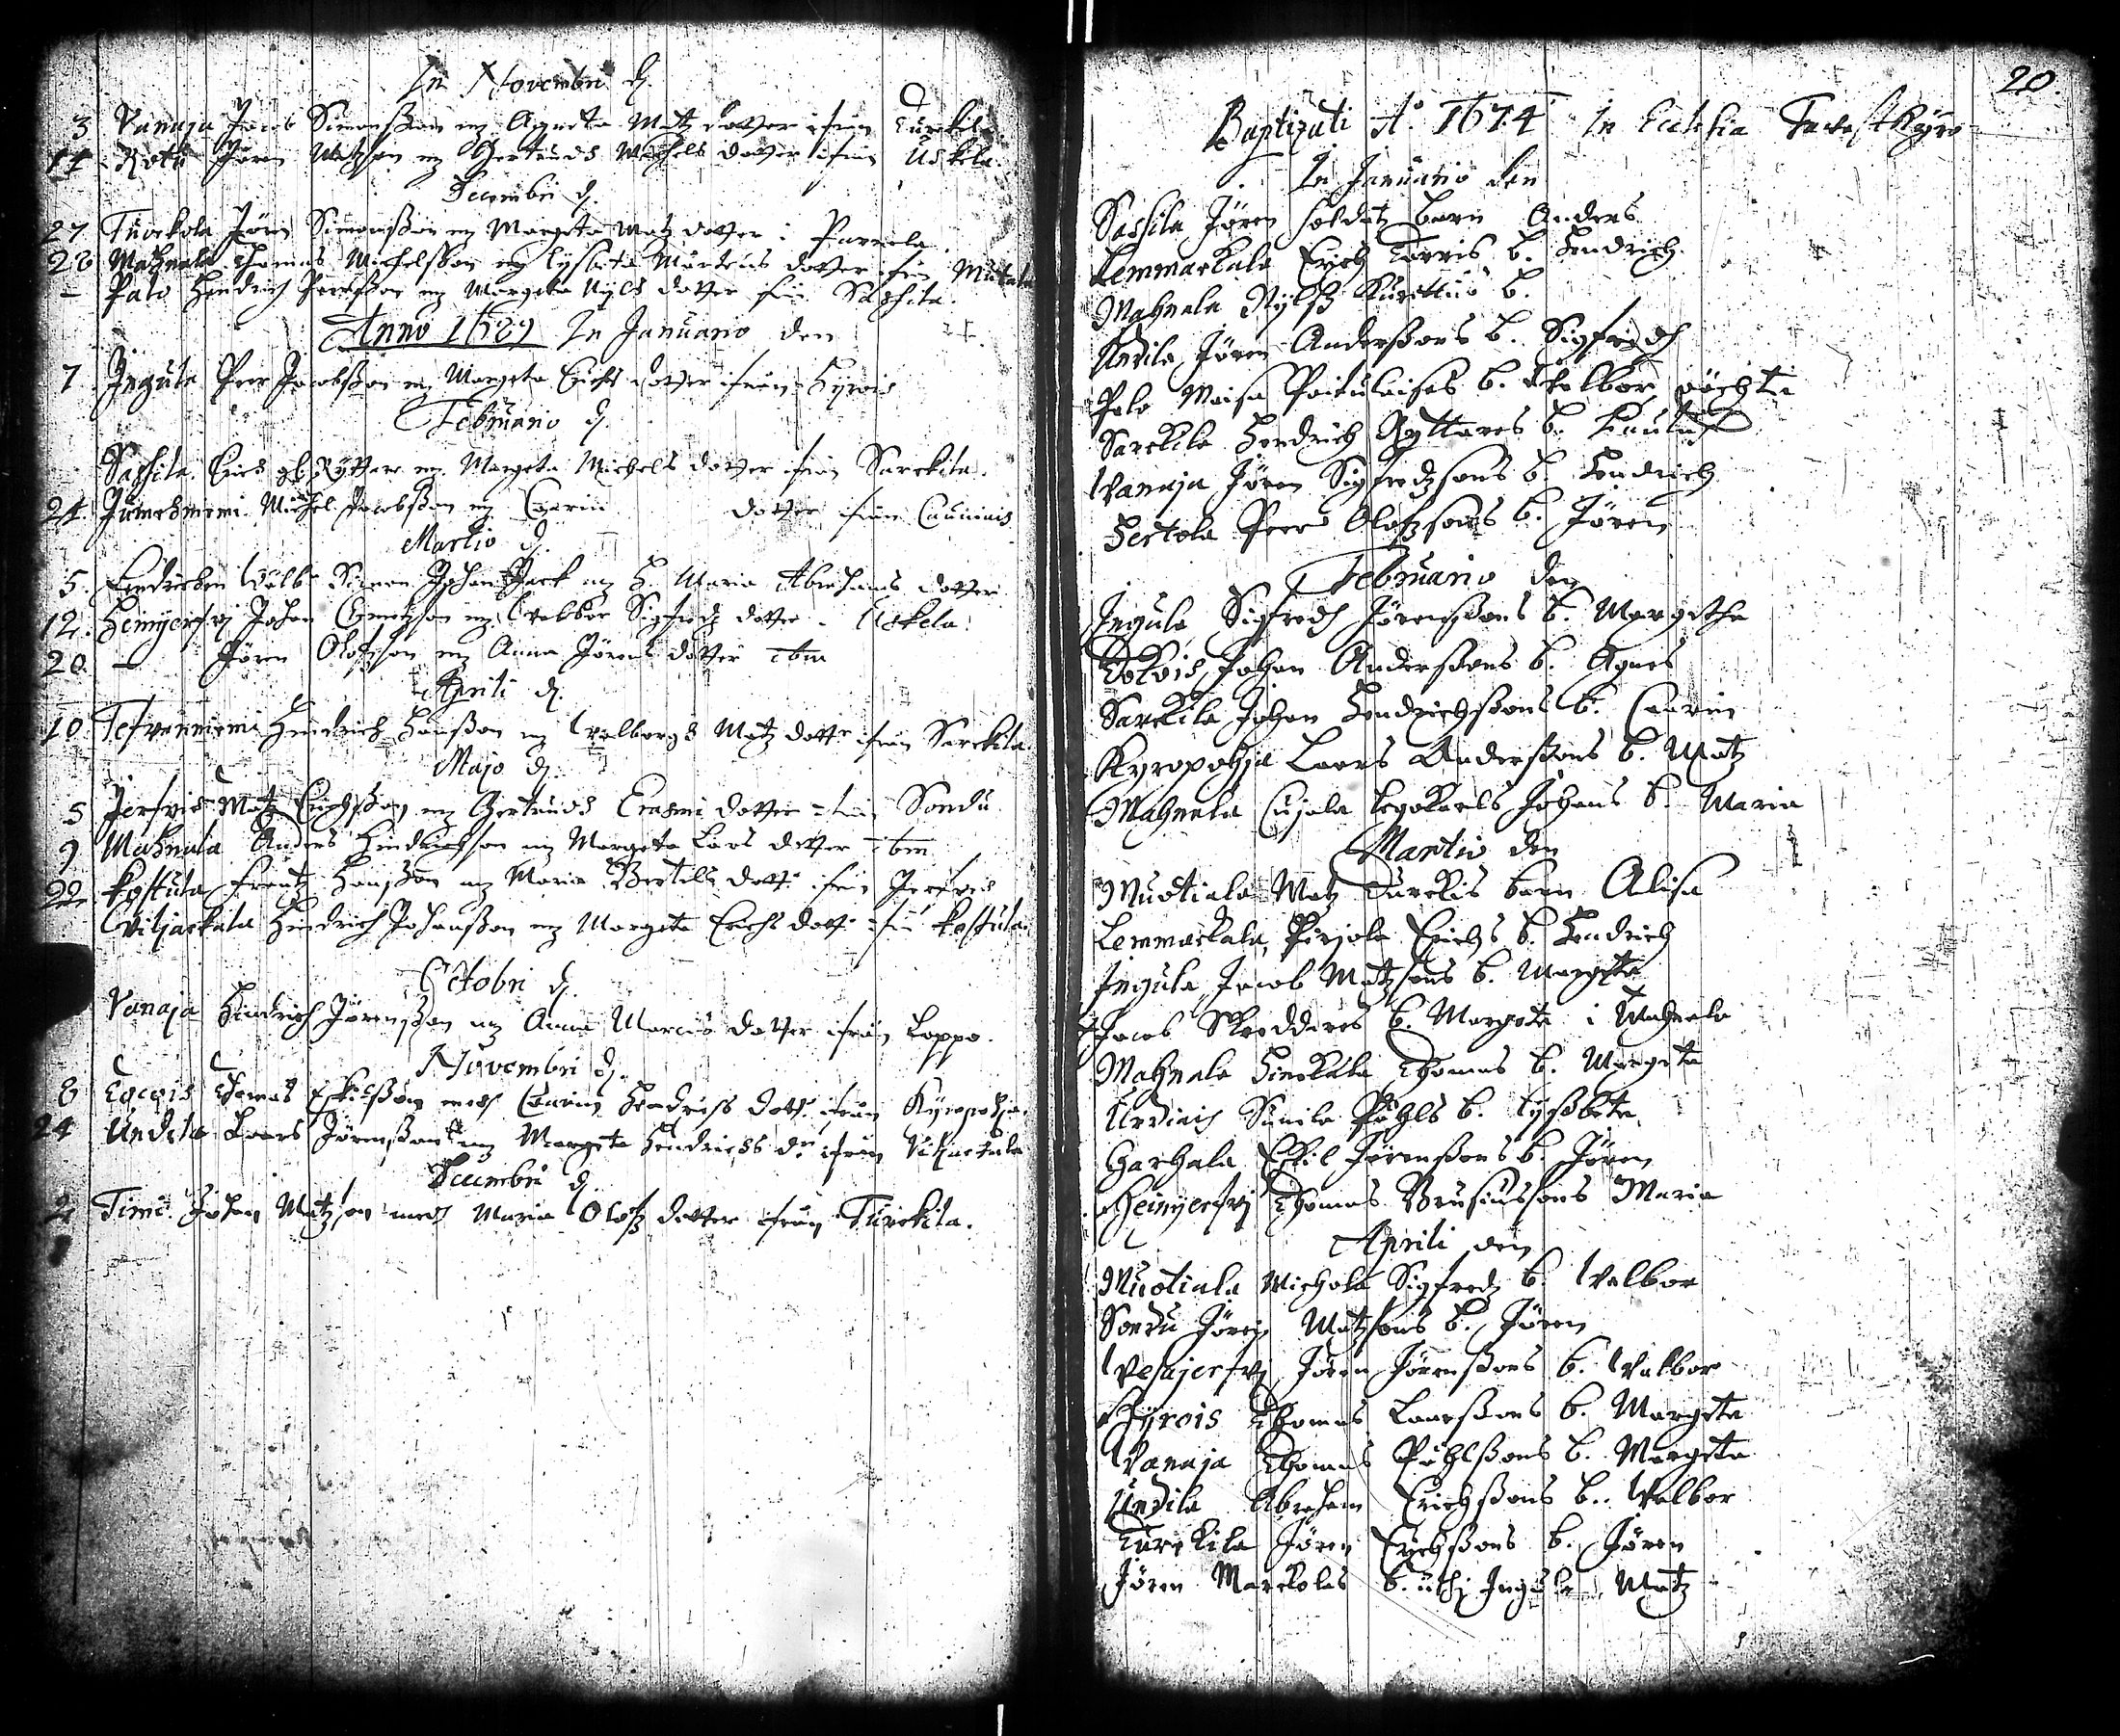 In Novembri d.
3 Vanaja Jacob Simonßon mz Agneta Matz dotter ifrån Turckila
14 Rotu Jören Matzson mz Gertrudh Michels dotter ifrån Uskila.
Decembri d.
27 Turckola Jören Simonßon mz Margeta Matz dotter i Parrila.
28 Mahnala Thomas Michelsson mz Lysbeta Martens dotter ifrån Mutala
– Palo Hendrich Persson mz Margeta Nyls dotter frå Saßila.
Anno 1689 In Januario den
7. Jngula Peer Jacobsson mz Margeta Erichs dotter ifrån Kyrois
Februario d.
Saßila Erich Ryttare mz Margeta Michels dotter ifrån Sarckila.
24. Jumesniemi Michel Jacobsson mz Caarin dotter ifrån Cauniais
Martio d.
5. Simon Johan mz H. Maria Abrahams dotter
12. Heinijerfvj Johan mz Walbor Sigfredz dotter – Uskela.
20. – Jören Olofzson mz Anna Jörens dotter ibm
Aprili d.
10. Tefvaniemi Hendrich Hansson mz Walborgh Matz dotter ifrån Sarckila
Majo d.
5 Jerfvis Matz Erichsson mz Gertrudh Erasmi dotter ifrån Sondu
9 Mahnala Anders Hindrichson mz Margeta Lars dotter ibm
22 Kostula Frantz Hansson mz Maria Bertils dotter ifrån Jerfvis
Viljackala Hindrich Johansson mz Margeta Erichs dotter ifrå Kostula
Octobri d.
Vanaja Hindrich Jörensson mz Anna Marcus dotter ifrån Loppo.
Novembri d.
8 Thomas Eskilsson medh Caarin Hendrichs dotter ifrån Kyropohja.
24 Undila Laars Jörensson mz Margeta Hendrichs dr ifrån Viljackala
Decembri d.
2 Timi Johan Matzson medh Maria Olofz dotter ifrån Turckila.
20
Baptizati Ao 1674 In Ecclesia Tavastkyro
In Januario den
Saßila Jören soldatz barn Anders
Lemmackala Erich Torris b. Hendrich.
Mahnala Nylß Kurittus b.
Undila Jören Anderssons b. Sigfredh
Palo Maisa b. Walbor
Sarckila Hendrich Ryttares b.
Vanaja Jören Sigfredzsons b. Hendrich
Hertola Peer Olofzsons b. Jören
Februario den
Jngula Sigfredh Jörenssons b. Margetha
Johan Anderssons b. Agnes
Sarckila Johan Hendrichssons b. Caarin
Kyropohja Laars Anderssons b. Matz
Mahnala Cujala Johans b. Maria
Martio den
Muotiala Matz Turckis barn Alisa
Lemmackala, Pirjola Erichs b. Hendrich
Jngula Jacob Matzsons b. Margeta
Jacob Skredderes b. Margeta i Mahnala
Mahnala Thomas b. Margeta
Urdiais Simila Påhls b. Lysbeta.
Harhala Eskil Jörenssons b. Jören
Heinijerfvj Thomas Brusiussons Maria
Aprili den
Muotiala Michola Sigfredz b. Walbor
Sondu Jören Matzsons b. Jören
Vesajerfvj Jören Jörenssons b. Walbor
Kyrois Thomas Laarssons b. Margeta
Vanaja Thomas Påhlssons b. Margeta
Undila Abraham Erichssons b. Walbor
Turckila Jören Erichssons b. Jören
Jören Marckolas b. uthj Jngula Matz